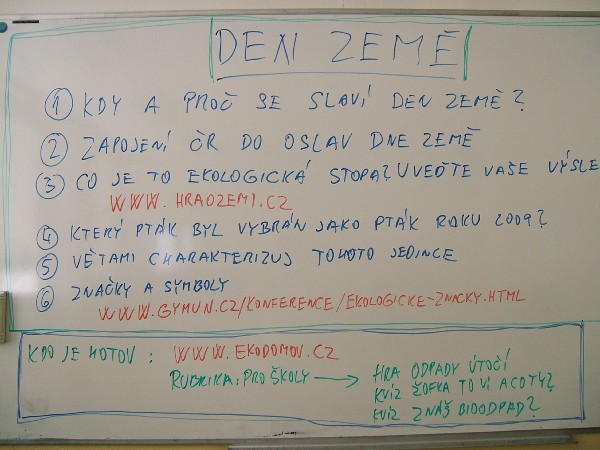 DEN ZEMĚ
1 KDY A PROČ SE SLAVÍ DEN ZEMĚ?
2 ZAPOJENÍ ČR DO OSLAV DNE ZEMĚ
3 CO JE TO EKOLOGICKÁ STOPA? UVEĎTE VAŠE VÝSLE
WWW.HRAOZEMI.CZ
4 KTERÝ PTÁK BYL VYBRÁN JAKO PTÁK ROKU 2009?
5 VĚTAMI CHARAKTERIZUJ TOHOTO JEDINCE
6 ZNAČKY A SYMBOLY
WWW.GYMUN.CZ/KONFERENCE/EKOLOGICKE-ZNACKY.HTML
KDO JE HOTOV: WWW.EKODOMOV.CZ
RUBRIKA: PRO ŠKOLY → HRA ODPADY ÚTOČÍ
KVÍZ ŽOFKA TO VÍ A CO TY?
KVÍZ ZNÁŠ BIOODPAD?